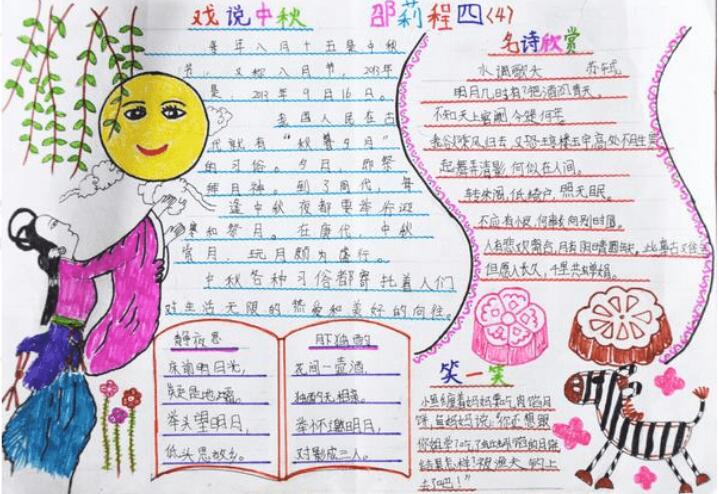 戏说中秋
邵莉程四(4)
每年八月十五是中秋
节，又称八月节，2013年
是，2013年9月16日。
我国人民在古
代就有“秋暮夕月”
的习俗。夕月，即祭
拜月神。到了周代，每
逢中秋夜都要举行迎
寒和祭月。在唐代，中秋
赏月、玩月颇为盛行。
中秋各种习俗都寄托着人们
对生活无限的热爱和美好的向往。
名诗欣赏
水调歌头 苏轼
明月几时有?把酒问青天。
不知天上宫阙，今夕何年。
我欲乘风归去 又恐 琼楼玉宇 高处不胜寒
起舞弄清影 何似在人间。
转朱阁，低绮户，照无眠。
不应有恨，何事长向别时圆。
人有悲欢离合，月有阴晴圆缺，此事古难全
但愿人长久，千里共婵娟。
静夜思
床前明月光，
疑是地上霜。
举头望明月，
低头思故乡。
月下独酌
花间一壶酒，
独酌无相亲。
举杯邀明月，
对影成三人。
笑一笑
小鱼缠着妈妈要吃肉馅月
饼，鱼妈妈说：“你还想跟
你姐学?吃了
结果怎样?被渔夫钓上
去了吧！”